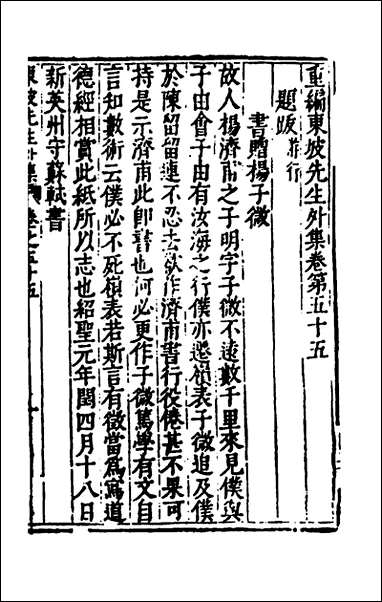 重編東坡先生外集卷第五十五
題跋雜行
書贈楊子微
故人楊濟甫之子明字子微不遠數千里來見僕與
子由會子由有汝海之行僕亦遷嶺表子微追及僕
於陳留留連不忍去欲作濟甫書行役倦甚不果可
持是示濟甫此即書也何必更作子微篤學有文自
言知數術云僕必不死嶺表若斯言有徵當爲寫道
德經相賞此紙所以志也紹聖元年閏四月十八日
新英州守蘇軾書
東坡先生外集 卷之五十五